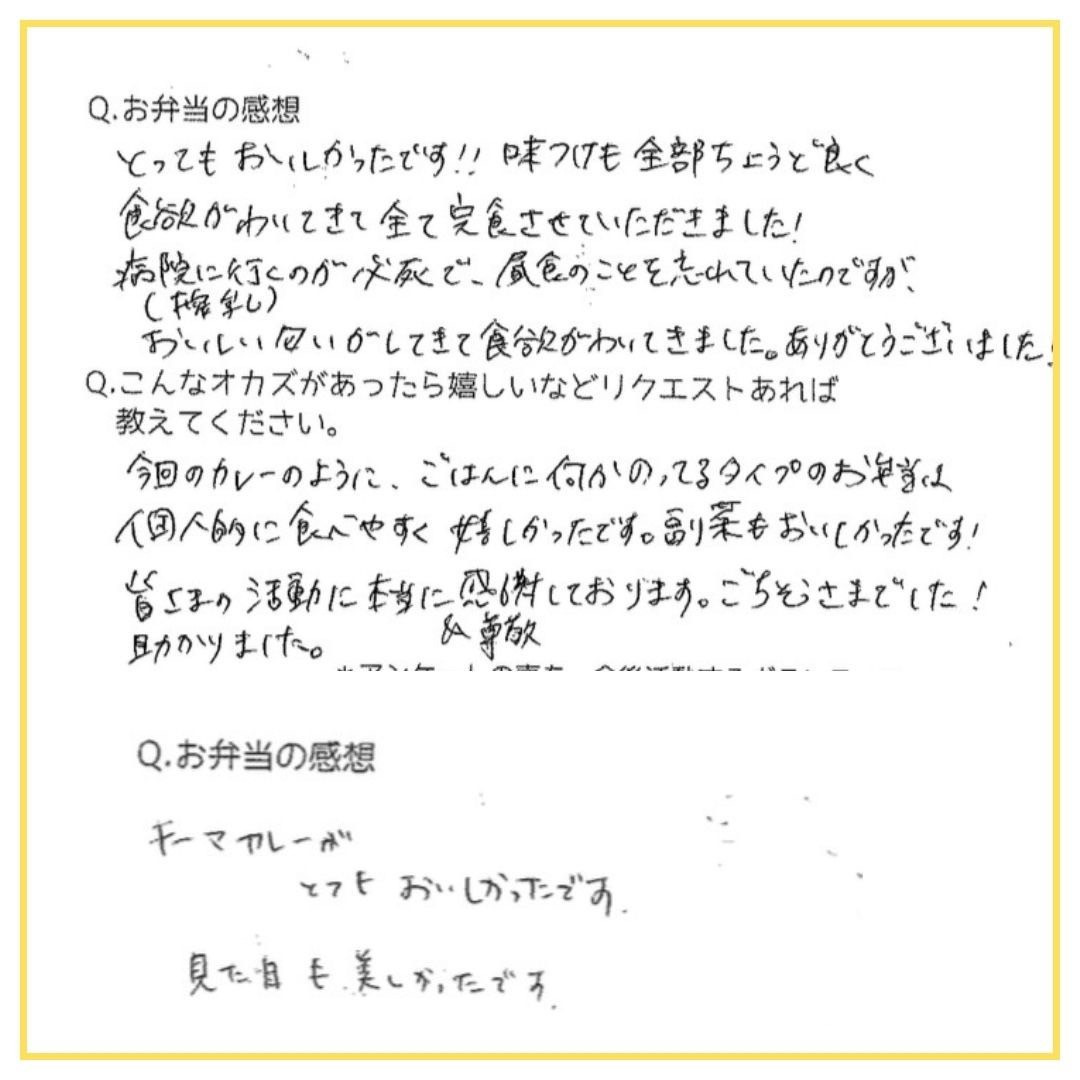 Q.お弁当の感想
とってもおいしかったです!! 味つけも全部ちょうど良く
食欲がわいてきて全て完食させていただきました!
病院に行くのが必死で、昼食のことを忘れていたのですが、
(搾乳)
おいしい匂いがしてきて食欲がわいてきました。ありがとうございました!
Q.こんなオカズがあったら嬉しいなどリクエストあれば
教えてください。
今回のカレーのように、ごはんに何かのってるタイプのお弁当は
個人的に食べやすく嬉しかったです。副菜もおいしかったです!
皆さまの活動に本当に感謝しております。ごちそうさまでした!
&尊敬
助かりました。
Q.お弁当の感想
キーマカレーが
とても おいしかったです.
見た目も美しかったです.